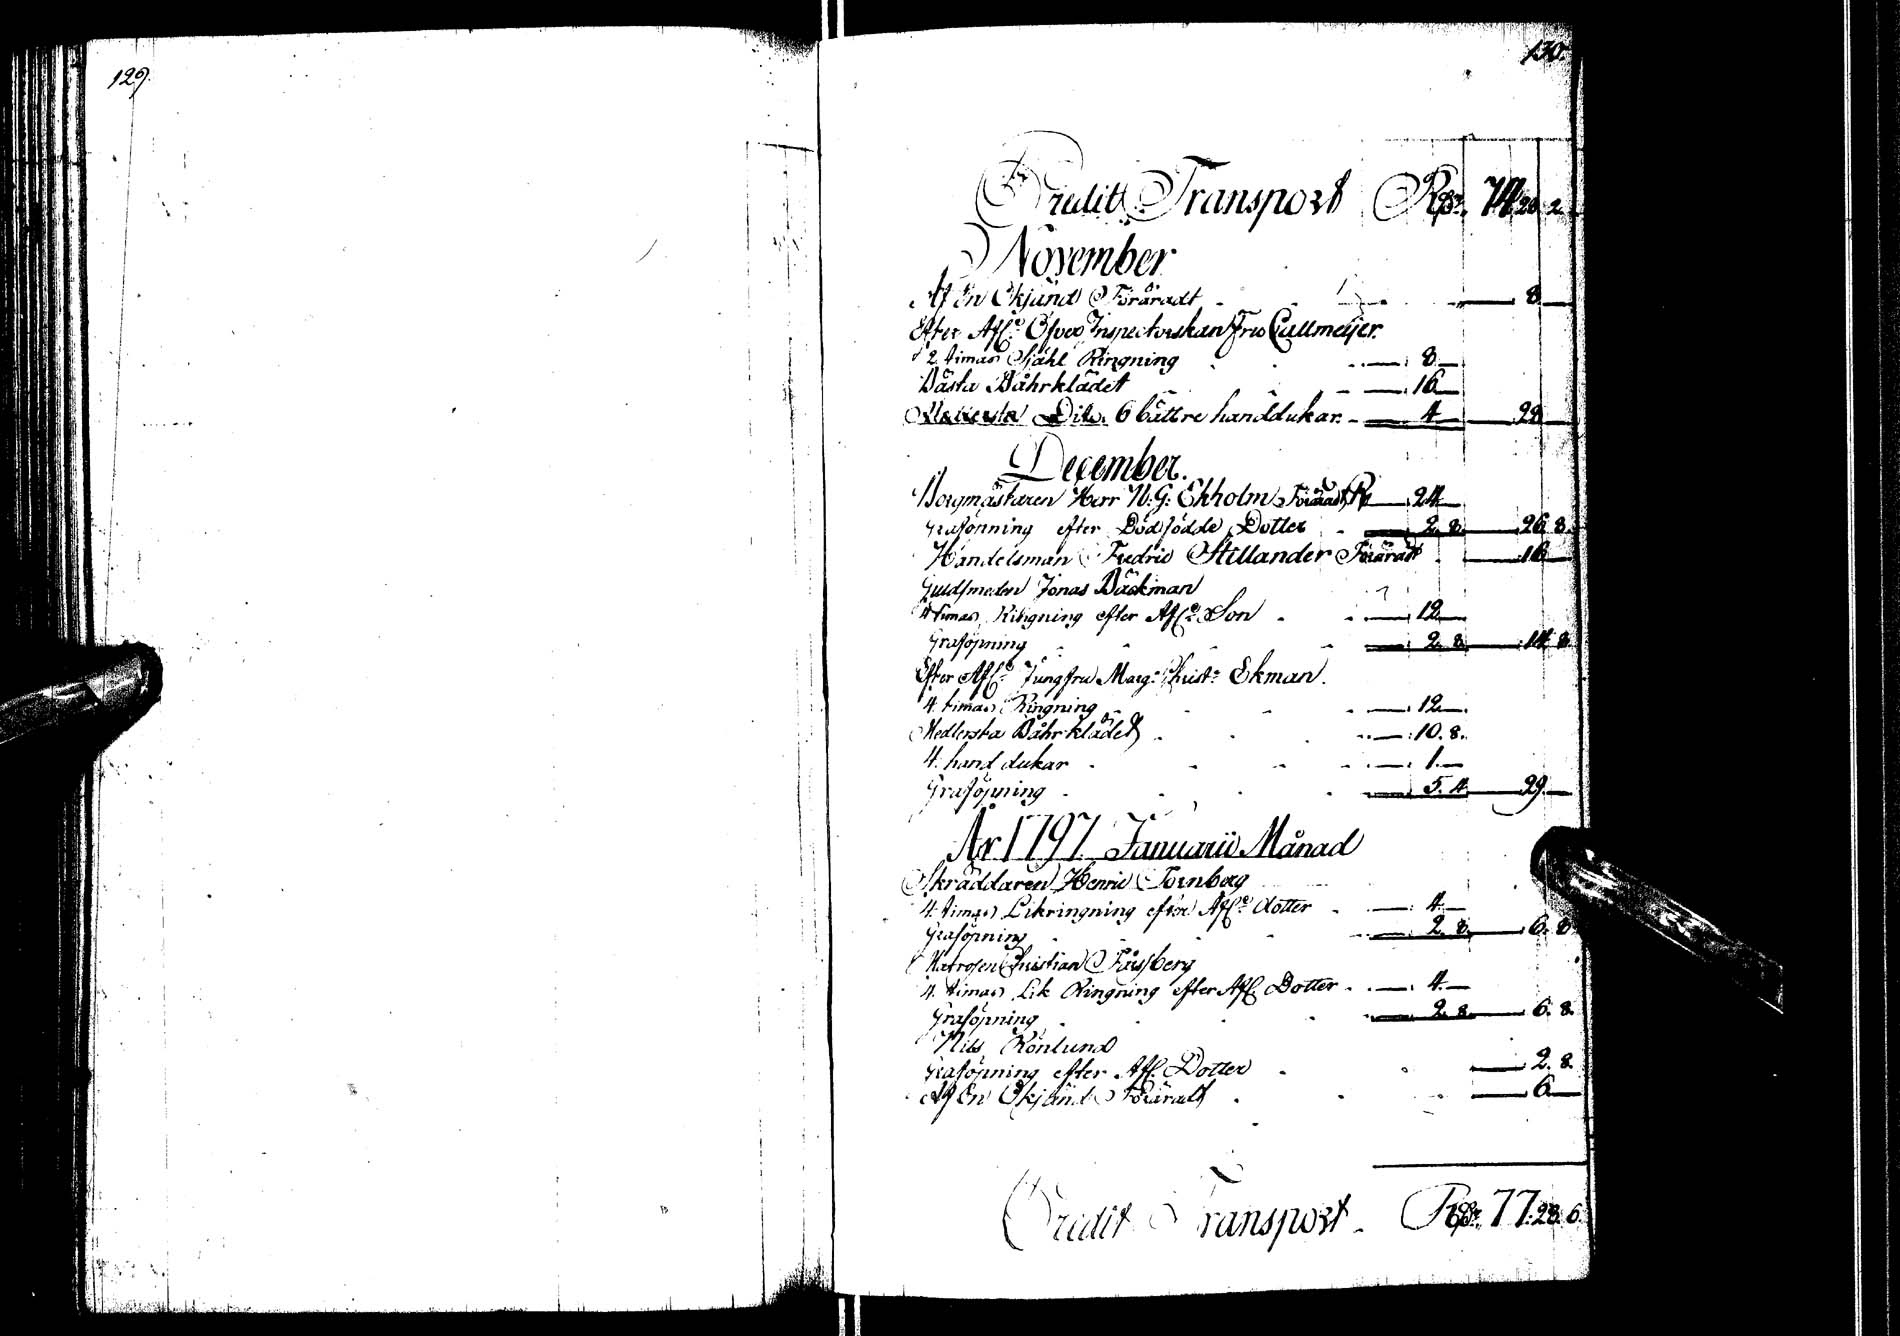 129.
130.
Credit Transport Rd:r 74 20 2
November
Af En Okjänd Föräradt 8
Efter Afl:ne Öfver Inspectorskan Fru Cullmeijer.
2 timars Sjähl Ringning 8
Bästa Båhrklädet 16
Dito. 6 bättre handdukar. 4 28
December.
Borgmästaren Herr N: G: Ekholm Förärat 24
Graföpning efter Dödfödde Dotter 2. 8. 26 8.
Handelsman Fredric Stillander Förärat 16
Guldsmeden Jonas Bäckman
4 timars Ringning efter Afl:ne Son 12
Graföpning 2. 8. 14. 8.
Efter Afl:ne Jungfru Marg: Christ: Ekman.
4. timars Ringning 12
Medlersta Båhrklädet 10. 8.
4. hand dukar 1.
Graföpning 5. 4 29.
År 1797 Januarii Månad
Skräddaren Henric Tornberg
4. timars Likringning efter Afl:ne dotter 4.
Graföpning 2. 8. 6. 8.
Matrosen Christian
4. timars Lik Ringning efter Afl. Dotter 4.
Graföpning 2. 8. 6. 8.
Nils Rönlund
Graföpning efter Afl. Dotter 2. 8.
Af En Okjänd Föräradt 6
Credit Transport Rd:r 77. 28. 6.